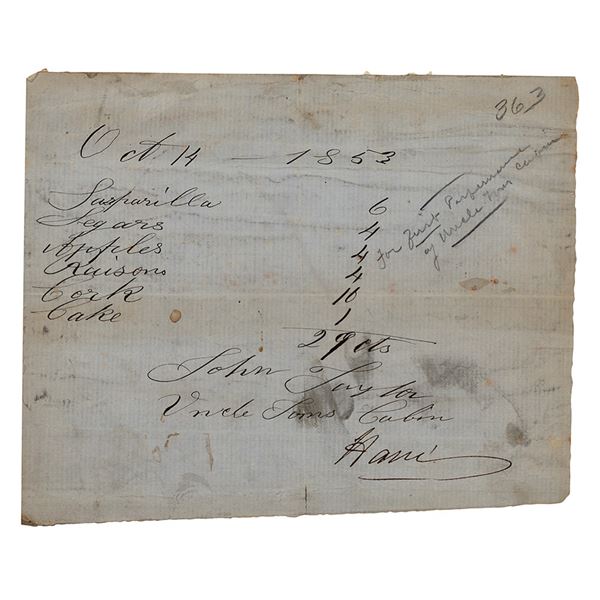 363
Oct 14 — 1853
for First Performance
of Uncle Tom Cabin
Sasparilla 6
Segars 4
Apples 4
Raisons 4
Cork 10
Cake 1
29 cts
John Taylor
Uncle Toms Cabin